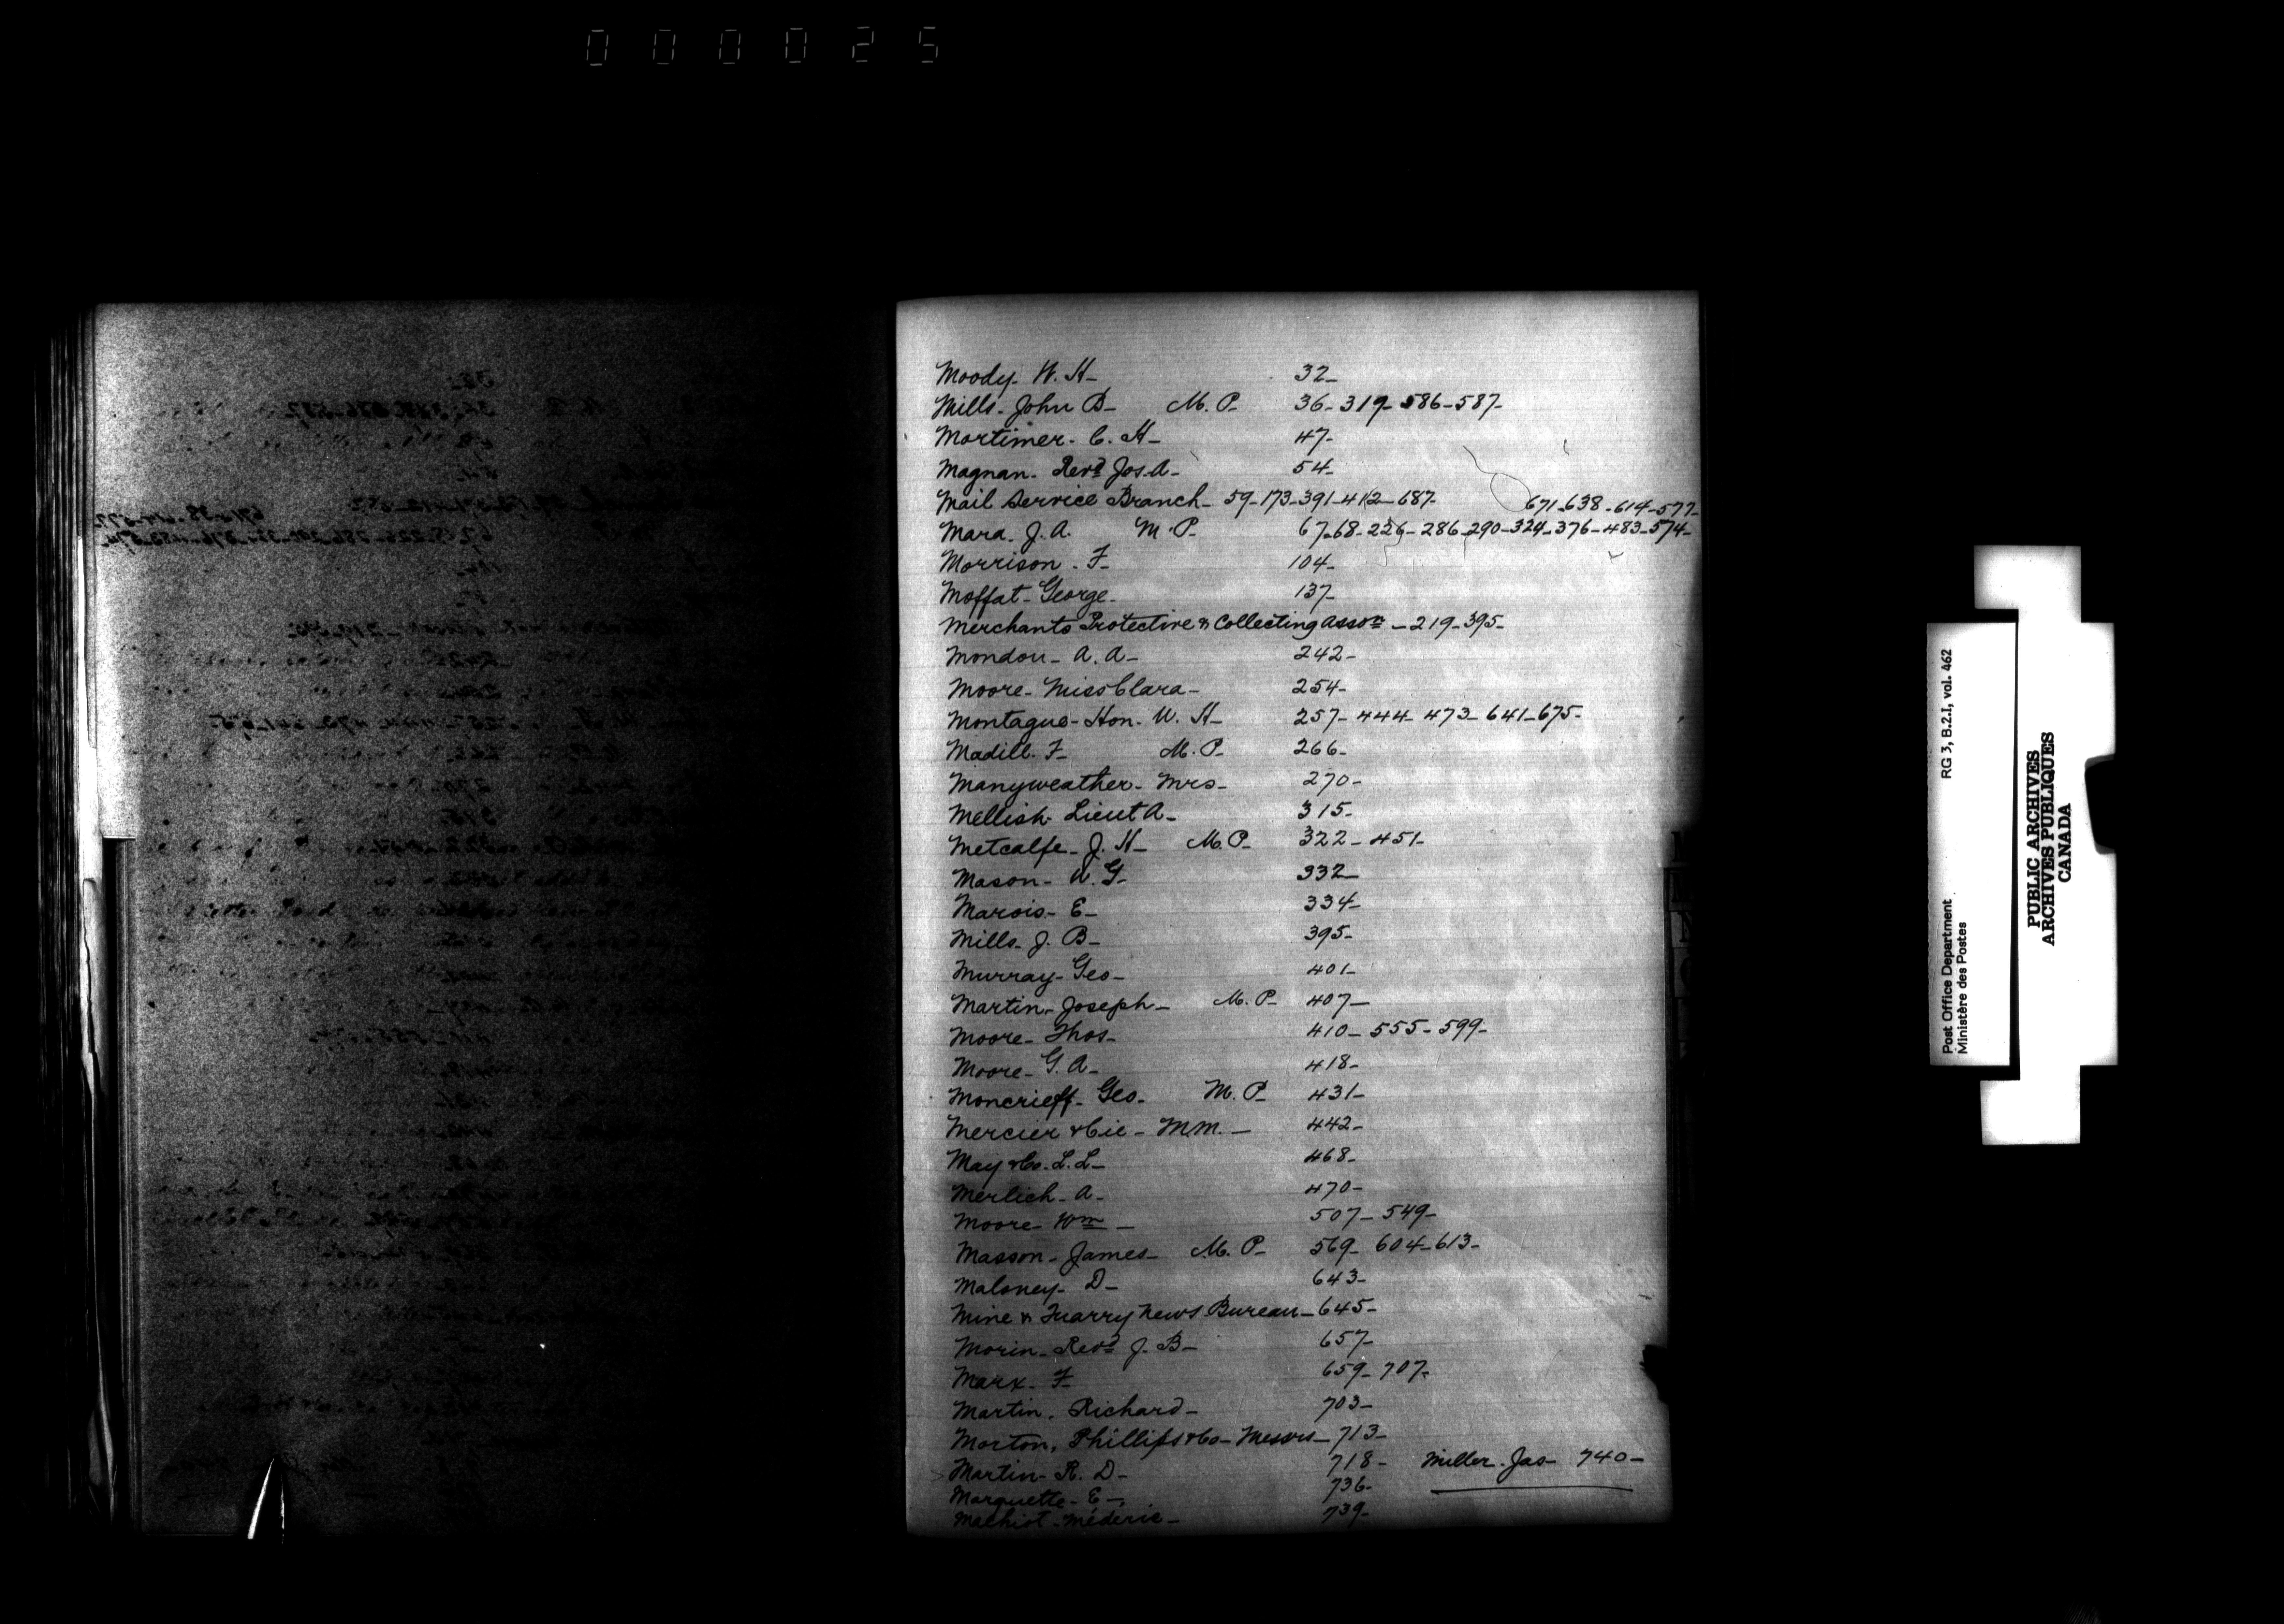 000025
Moody- W. H- 32-
Mills- John B- M. P- 36-319-586-587-
Mortimer- C. H- 47-
Magnan- Revd Jos. A- 54-
Mail Service Branch- 59-173-391-412-687-
671-638-614-577-
Mara- J. A. M. P- 67-68-226-286-290-324-376-483-574-
Morrison- F- 104-
Moffat- George- 137-
Merchants Protective & Collecting Asson - 219-395-
Mondou- A. A- 242-
Moore- Miss Clara- 254-
Montague- Hon- W. H- 257-444-473-641-675-
Madill- F- M. P- 266-
Manyweather- Mrs- 270-
Mellish- Lieut A- 315-
Metcalfe- J. H- M. P- 322-451-
Mason- W. G- 332-
Marois- E- 334-
Mills- J. B- 395-
Murray- Geo- 401-
Martin- Joseph- M. P- 407-
Moore- Thos- 410-555-599-
Moore- G. A- 418-
Moncrieff- Geo- M. P- 431-
Mercier & Cie- MM.- 442-
May & Co. L. L- 468-
Merlich- A- 470-
Moore- Wm - 507-549-
Masson- James- M. P- 569-604-613-
Maloney- D- 643-
Mine & Quarry News Bureau- 645-
Morin- Revd J. B- 657-
Marx- F- 659-707-
Martin. Richard- 703-
Morton, Phillips & Co- Messrs- 713-
Martin- R. D- 718- Miller- Jas- 740-
Marquette- E- 736-
Mathiot- Méderic- 739-
Post Office Department RG 3, B.2.I, vol. 462
Ministère des Postes
PUBLIC ARCHIVES
ARCHIVES PUBLIQUES
CANADA